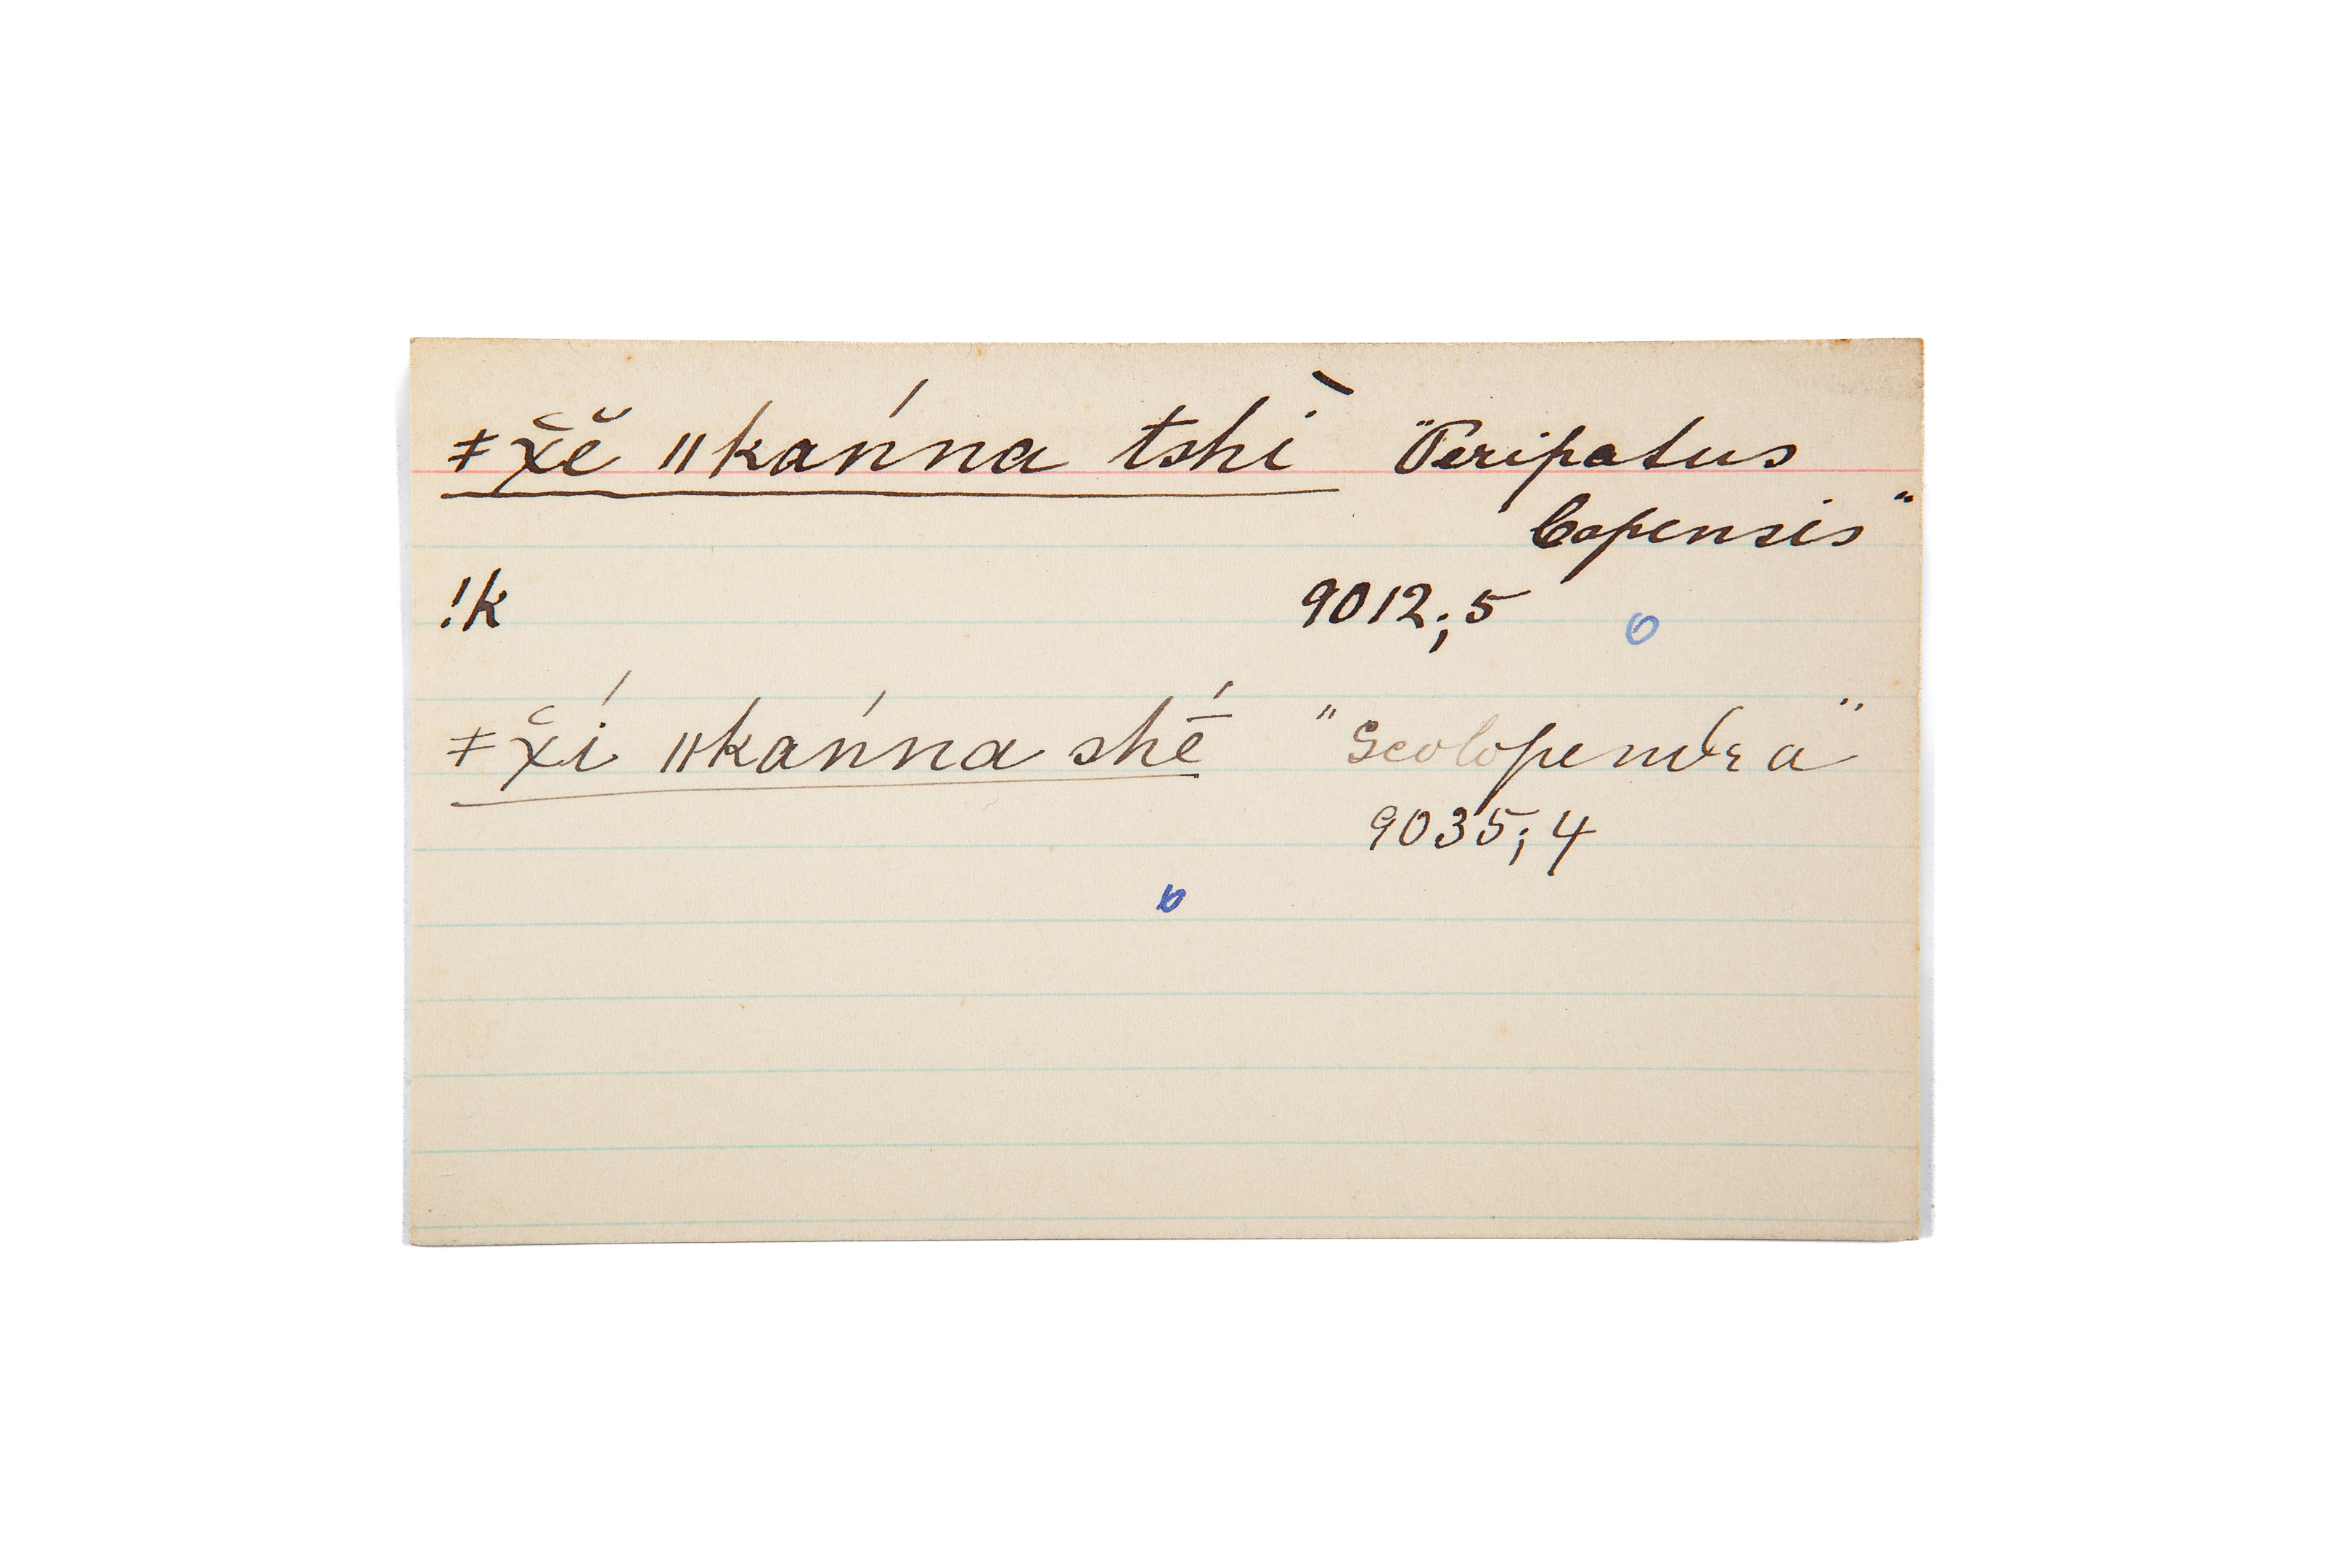 ǂχ̆ĕ ǁkańna tshì "Peripatus
Capensis"
!k 9012; 5
ǂχ̆í ǁkańna shḗ "Scolopendra"
9035; 4